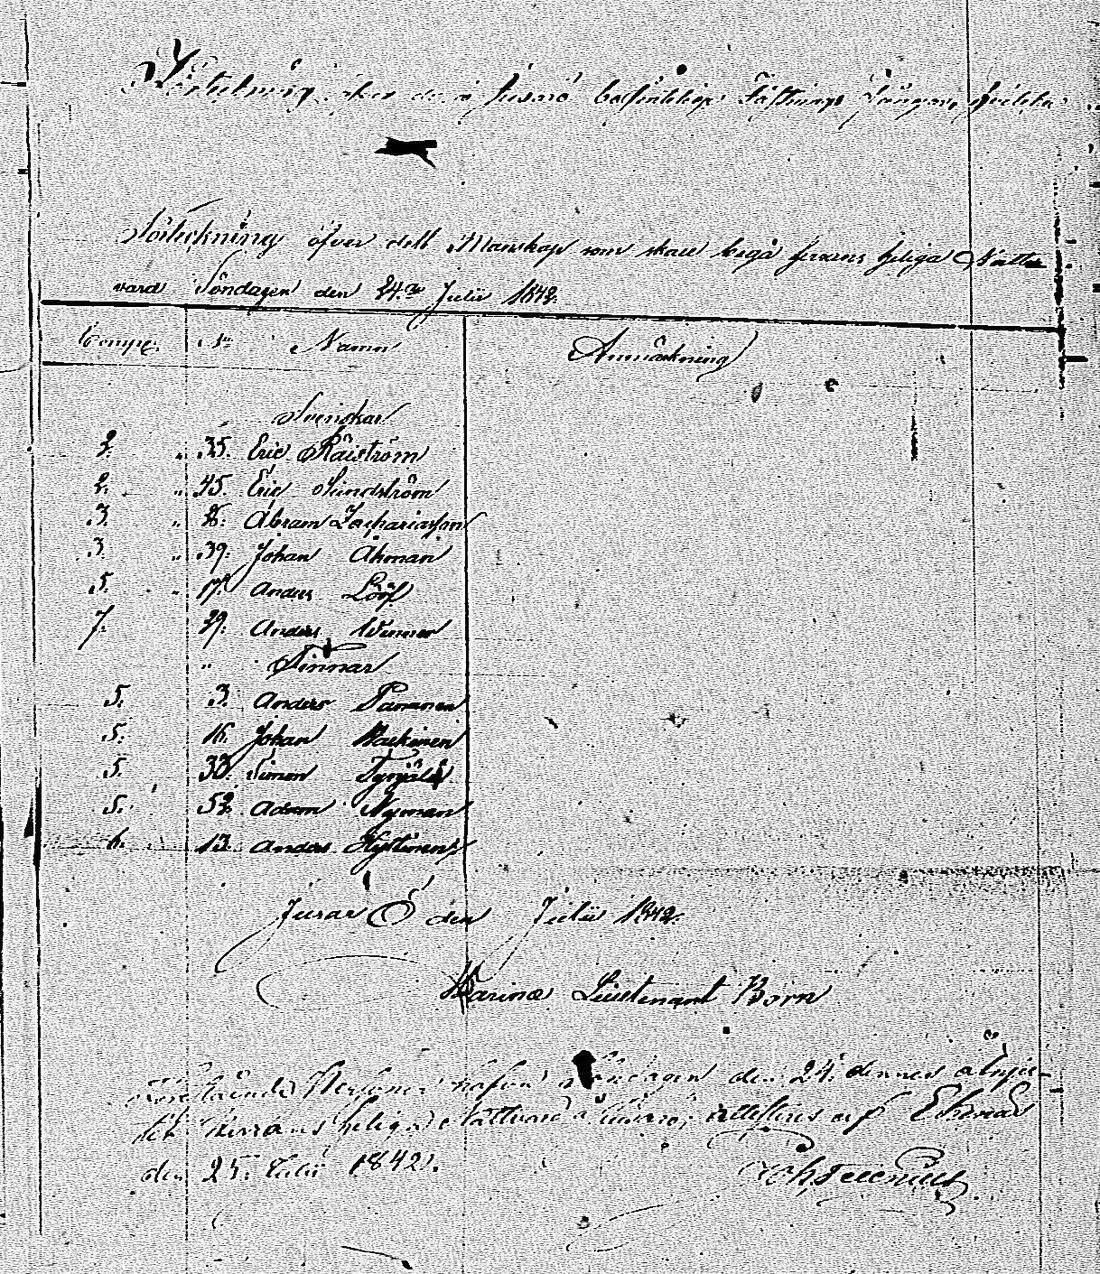 Förtekning öfver de å Jusarö befintelige Fästnings Fångar, hvilka
Förteckning öfver dett Manskap som skall begå herrans heliga Natt-
vard Söndagen den 24.de Julii 1842.
Compe: No Namn Anmärkning
Svenskar
2. " 35. Eric Råström
2. " 45. Eric Sundström
3. " 8. Abram Zachariasson
3. " 39. Johan Åhman
5. " 17. Anders Lööf
7. 29. Anders Winner
" Finnar
5. 3. Anders Pananen
5. 16. Johan
5. 33. Simon
5. 52. Adam Nyman
6. 13. Anders Hyttinen
Jusar Ö den Julii 1842.
Marine Lieutenant Born
Förestående Personer hafva Söndagen den 24. dennes
tit Herrans heliga Nattvard å Jusarö, attesteras af Ekenäs
den 25. Julii 1842.